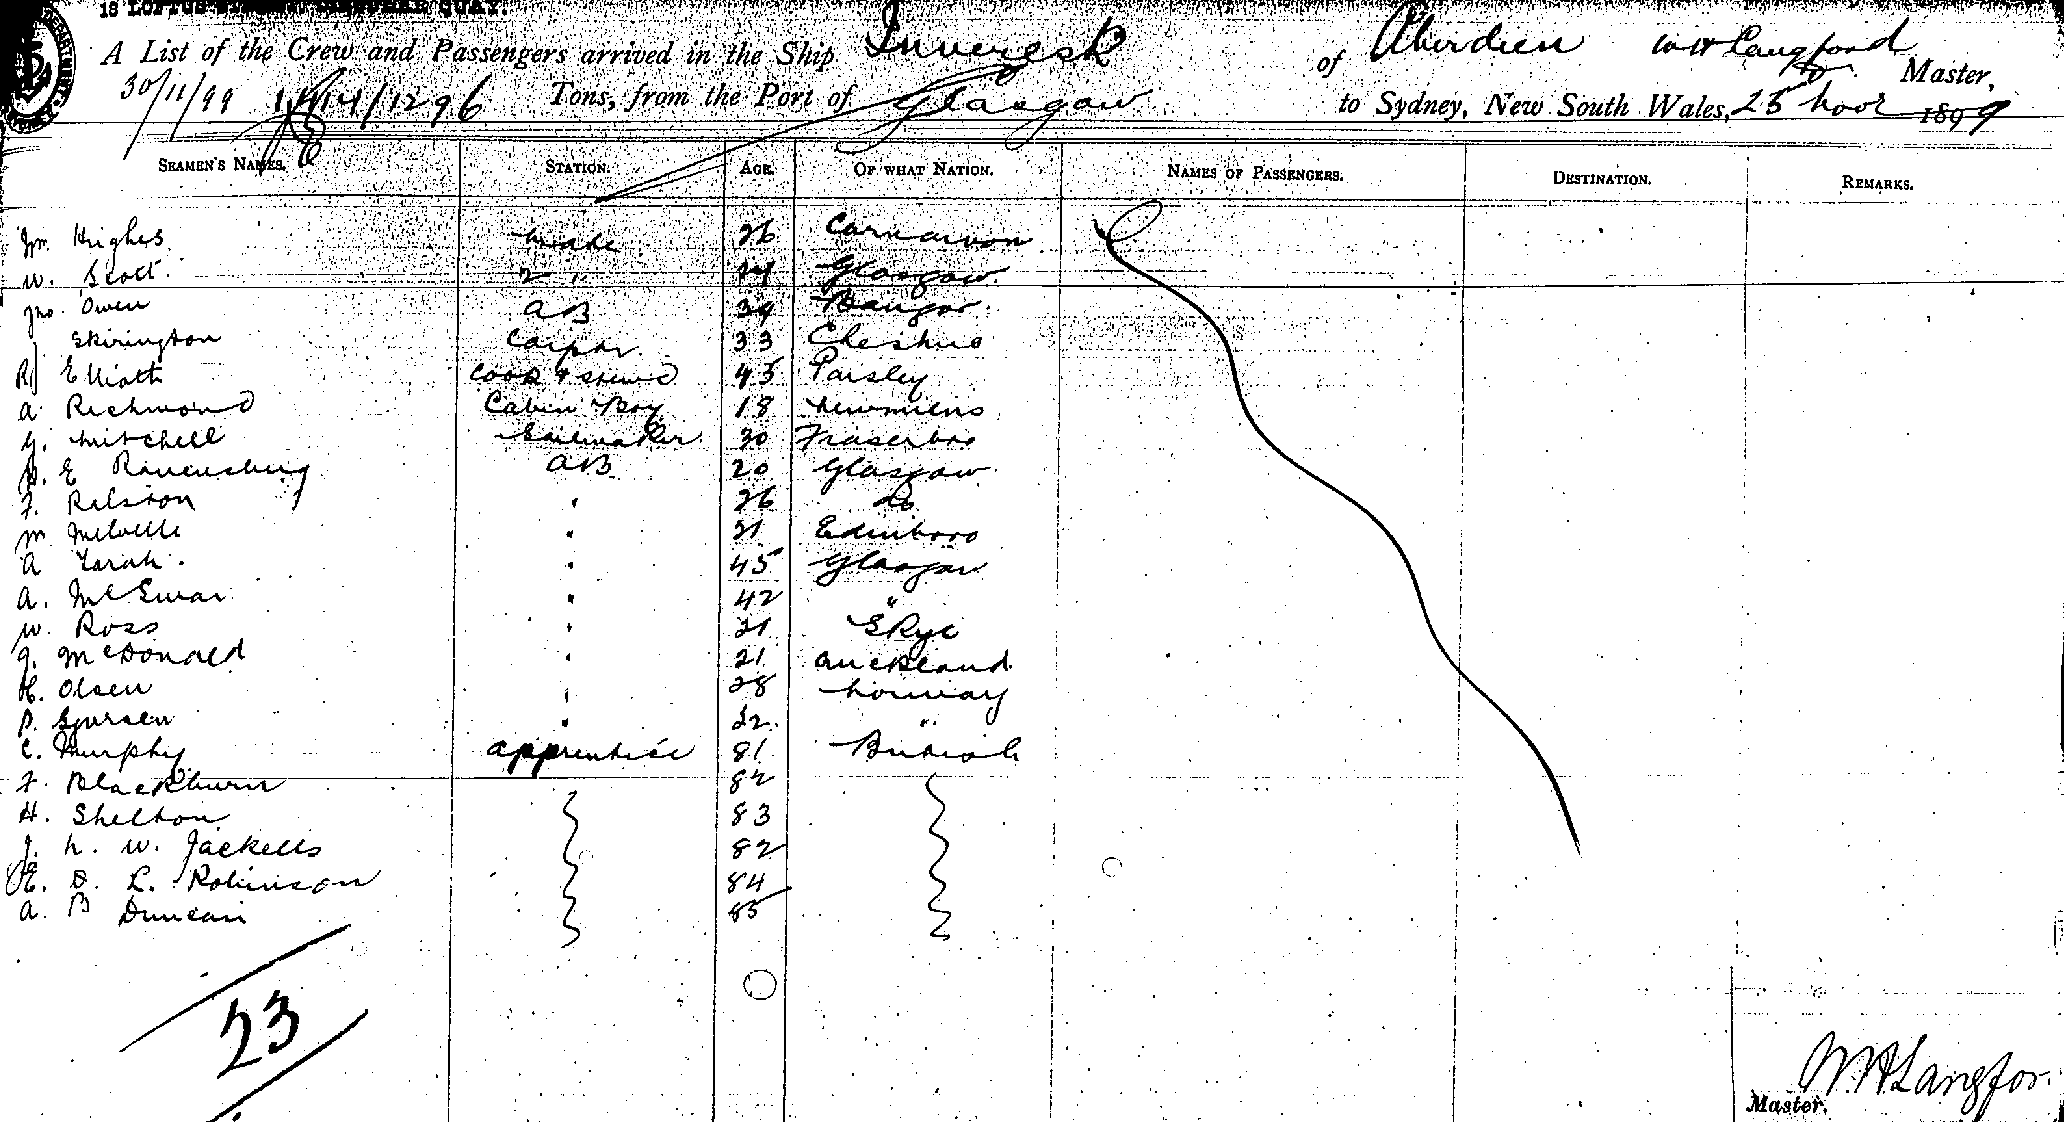 18 LOFTUS STREET, CIRCULAR QUAY.
A List of the Crew and Passengers arrived in the Ship Inveresk of Aberdeen W H Langford Master,
30/11/99 /1296 Tons, from the Port of Glasgow to Sydney, New South Wales, 25 Novr 1899
SEAMEN'S NAMES. STATION. AGE. OF WHAT NATION. NAMES OF PASSENGERS. DESTINATION. REMARKS.
Hughes Mate 26 Carnarvon
W. Scott 2 " Glasgow
Jno. Owen AB Bangor
Skirington Carptr 33 Cheshire
Elliott Cook & Stewd 45 Paisley
A Richmond Cabin Boy 18 Newmilns
G. Mitchell Sailmaker 30 Fraserbro
E Ravensburg AB 20 Glasgow
F. Ralston " 26 Do
M Melville " 21 Edinboro
A " 45 Glasgow
A. McEwan " 42 "
W. Ross " 21 Skye
J. McDonald " 21 Auckland
H. Olsen " 28 Norway
" 22 "
C. Murphy apprentice 81 British
F. Blackburn 82
H. Shelton 83
J. H. W. Jackells 82
D. L. Robinson 84
A. B Duncan 85
23
W H Langfor
Master.